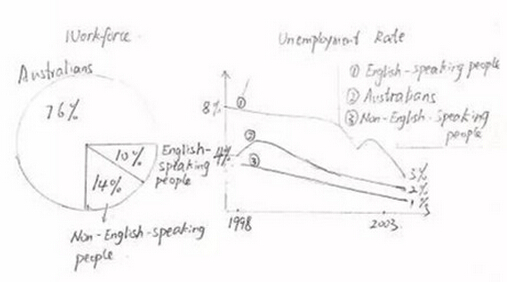 Workforce
Australians
76%
10%
14%
English-
speaking
people
Non-English-speaking
people
Unemployment Rate
① English-speaking people
② Australians
③ Non-English-speaking
people
①
8%
②
4%
③
3%
2%
1%
1998
2003